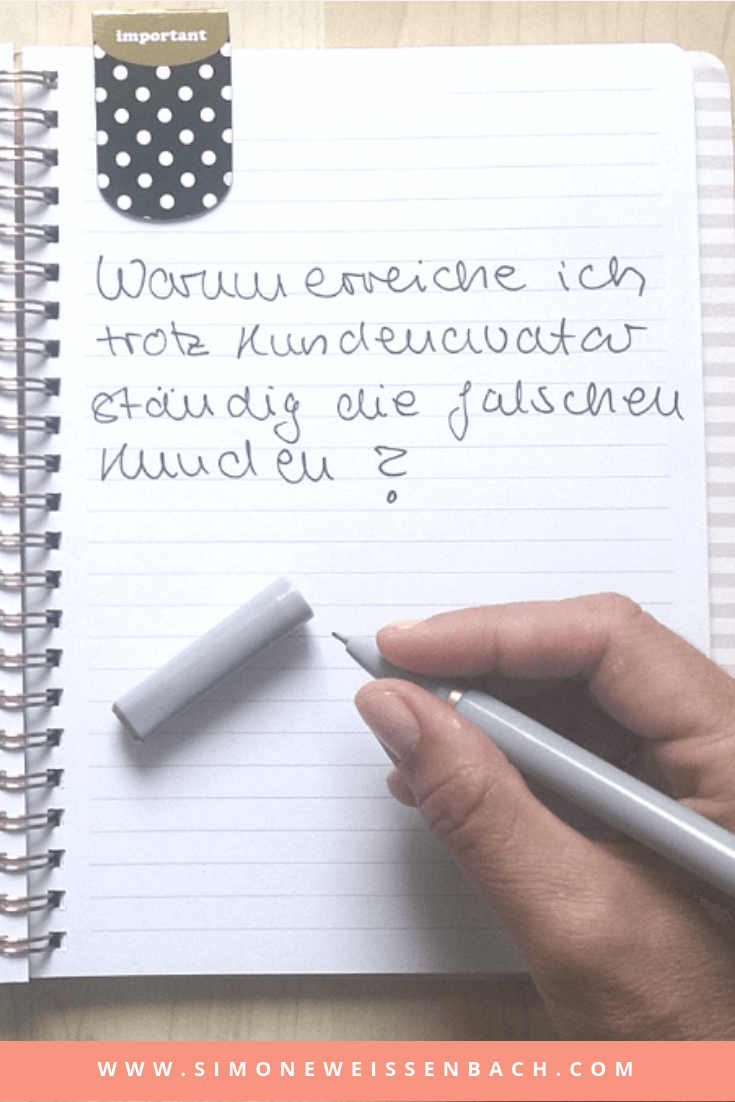 important
Warum erreiche ich
trotz Kundenavatar
ständig die falschen
Kunden?
WWW.SIMONEWEISSENBACH.COM